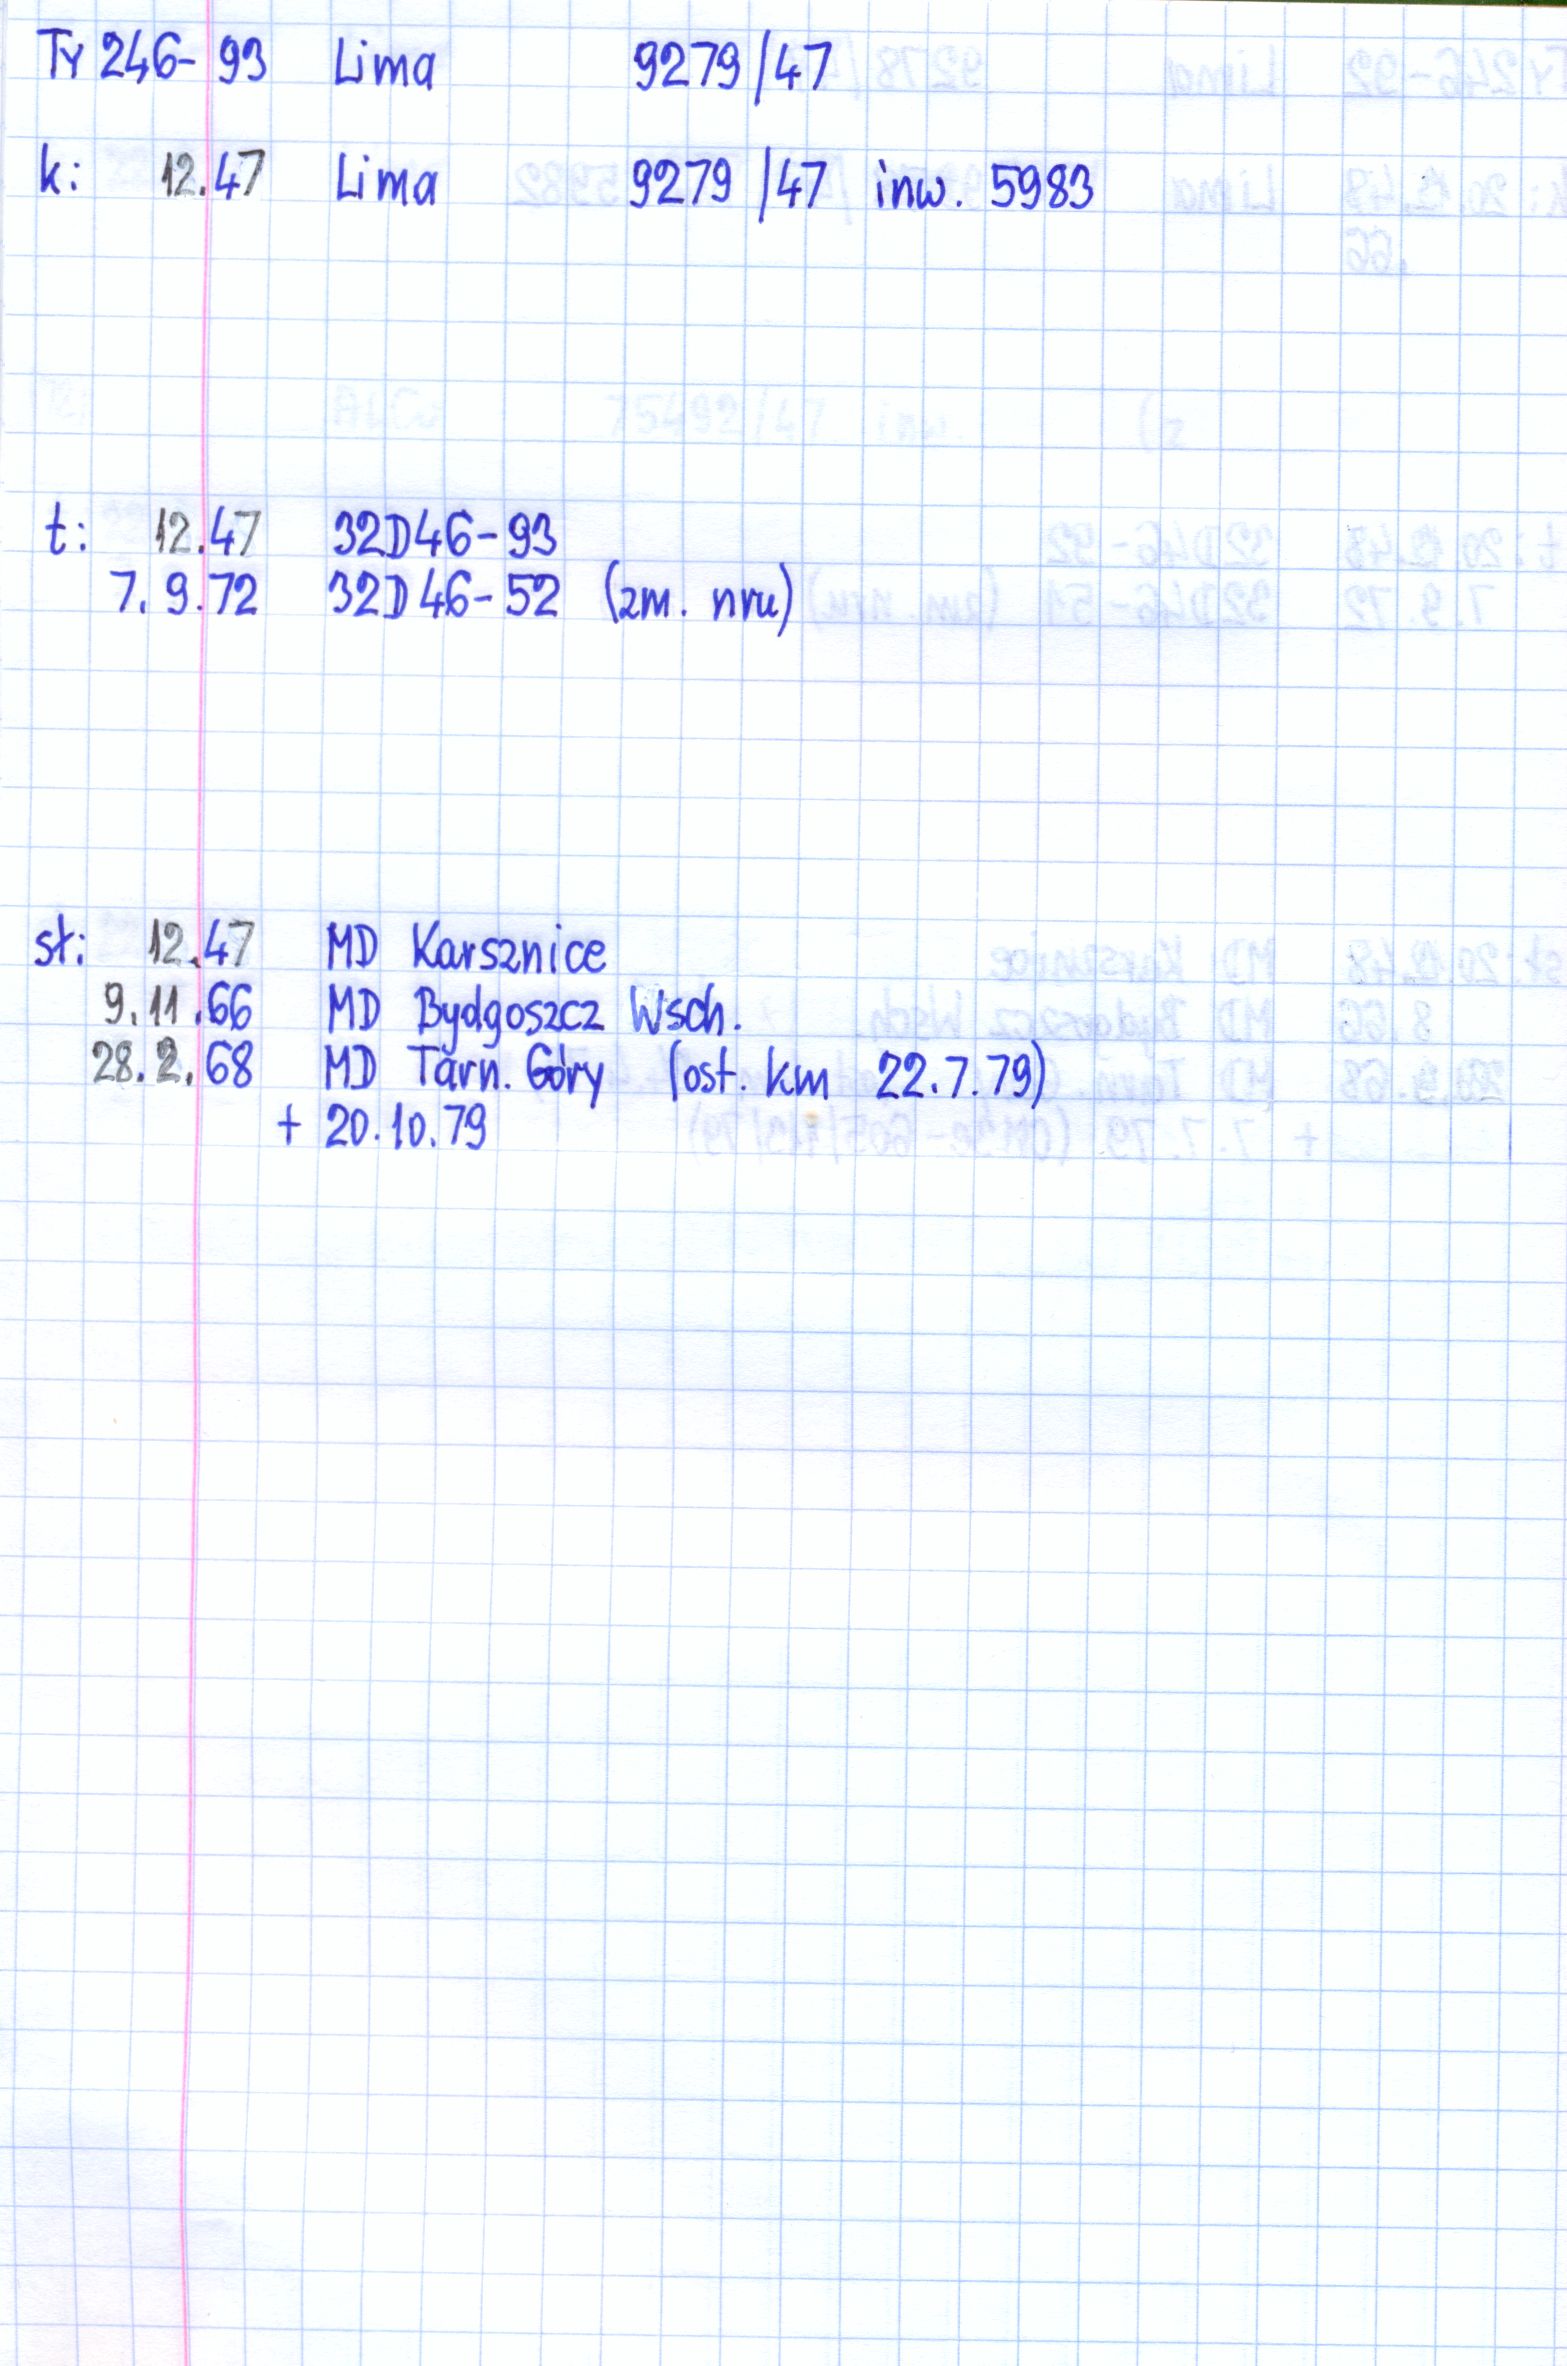 Ty 246-93 Lima 9279/47
k: 12.47 Lima 9279/47 inw. 5983
t: 12.47 32D46-93
7.9.72 32D46-52 (zm. nru)
st: 12.47 MD Karsznice
9.11.66 MD Bydgoszcz Wsch.
28.2.68 MD Tarn. Góry (ost. km 22.7.79)
+ 20.10.79